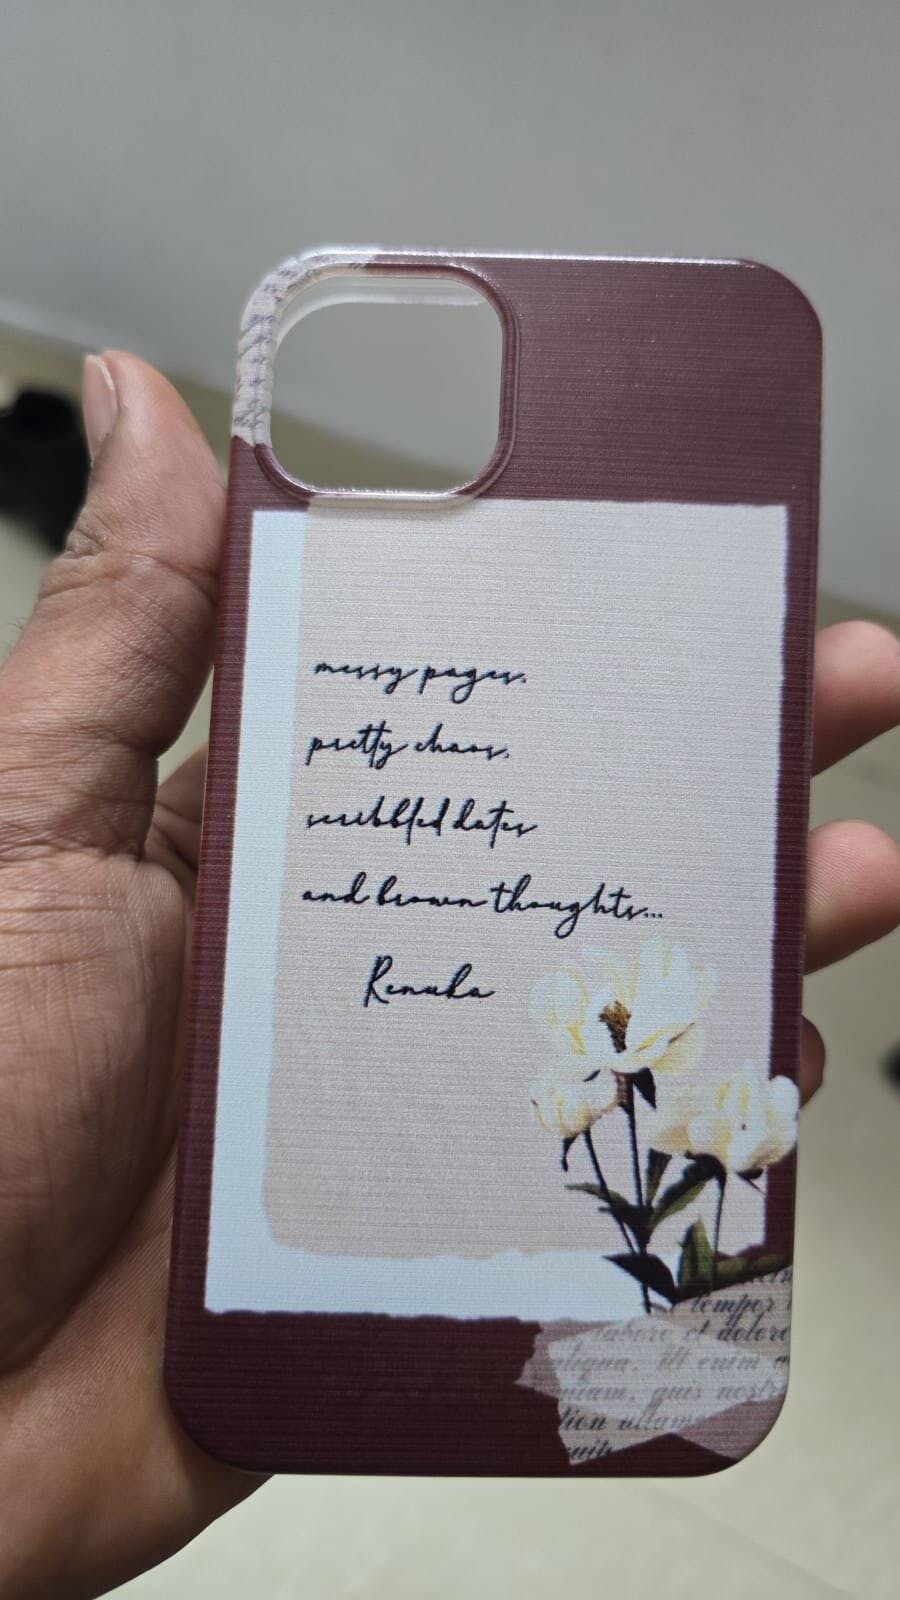 messy pages.
pretty chaos.
scribbled dates
and brown thoughts...
Renuka
tempor
labore et dolore
aliqua. Ut enim
quis nostr
tion ullam